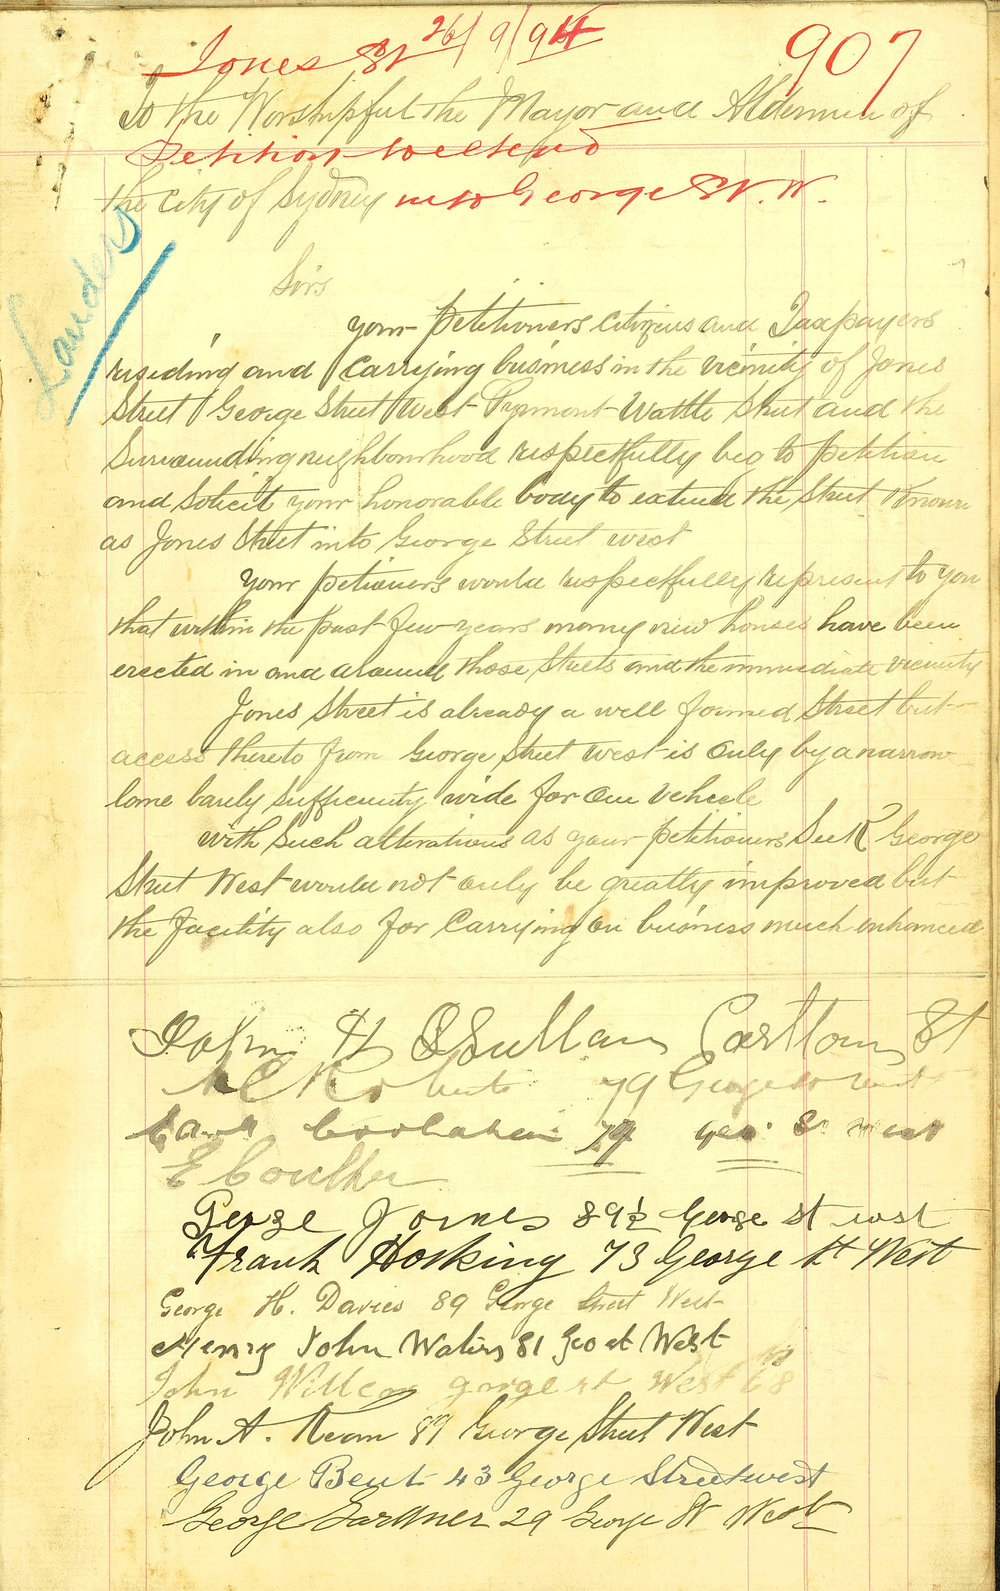 Jones St 26/9/94
907
To the Worshipful the Mayor and Aldermen of
Petition to extend
the City of Sydney into George St. W.
Landers
Sirs
your petitioners citizens and Taxpayers
residing and carrying business in the vicinity of Jones
Street George Street West Pyrmont Wattle Street and the
Surrounding neighbourhood respectfully beg to petition
and Solicit your honorable body to extend the Street Known
as Jones Street into George Street west
Your petioners would respectfully represent to you
that within the past few years many new houses have been
erected in and around those Streets and the immediate vicinity
Jones Street is already a well formed Street but
access thereto from George Street west is only by a narrow
lane barely sufficiently wide for one vehicle
with such alterations as your petitioners Seek George
Street West would not only be greatly improved but
the facility also for Carrying on business much enhanced
John H O'Sullivan Carlton St
Roberts 79 George St West
79 Geo. St West
E Coulter
George Jones 89½ George st west
Frank Hosking 73 George St West
George H. Davies 89 George Street West
Henry John Waters 81 Geo st West
John george st West 68
John A. Kean 87 George Street West
George Bent 43 George Street west
George Gardner 29 George St West